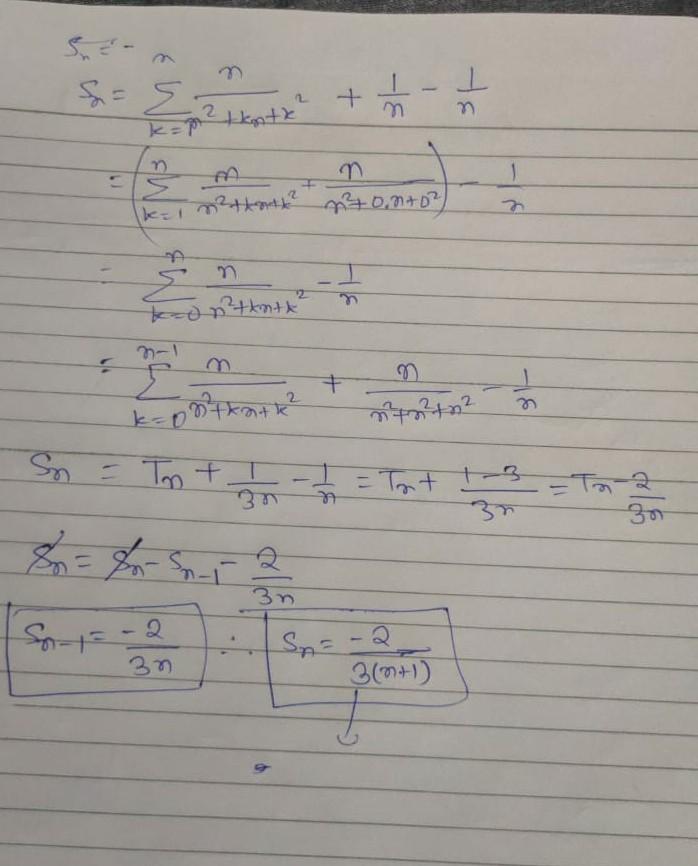 Sₙ = -
Sₙ = Σ_{k=1}^{n} n/(n²+kn+k²) + 1/n - 1/n
= (Σ_{k=1}^{n} n/(n²+kn+k²) + n/(n²+0.n+0²)) - 1/n
= Σ_{k=0}^{n} n/(n²+kn+k²) - 1/n
= Σ_{k=0}^{n-1} n/(n²+kn+k²) + n/(n²+n²+n²) - 1/n
Sₙ = Tₙ + 1/3n - 1/n = Tₙ + (1-3)/3n = Tₙ - 2/3n
Sₙ = Sₙ - Sₙ₋₁ - 2/3n
Sₙ₋₁ = -2/3n ∴ Sₙ = -2/3(n+1)